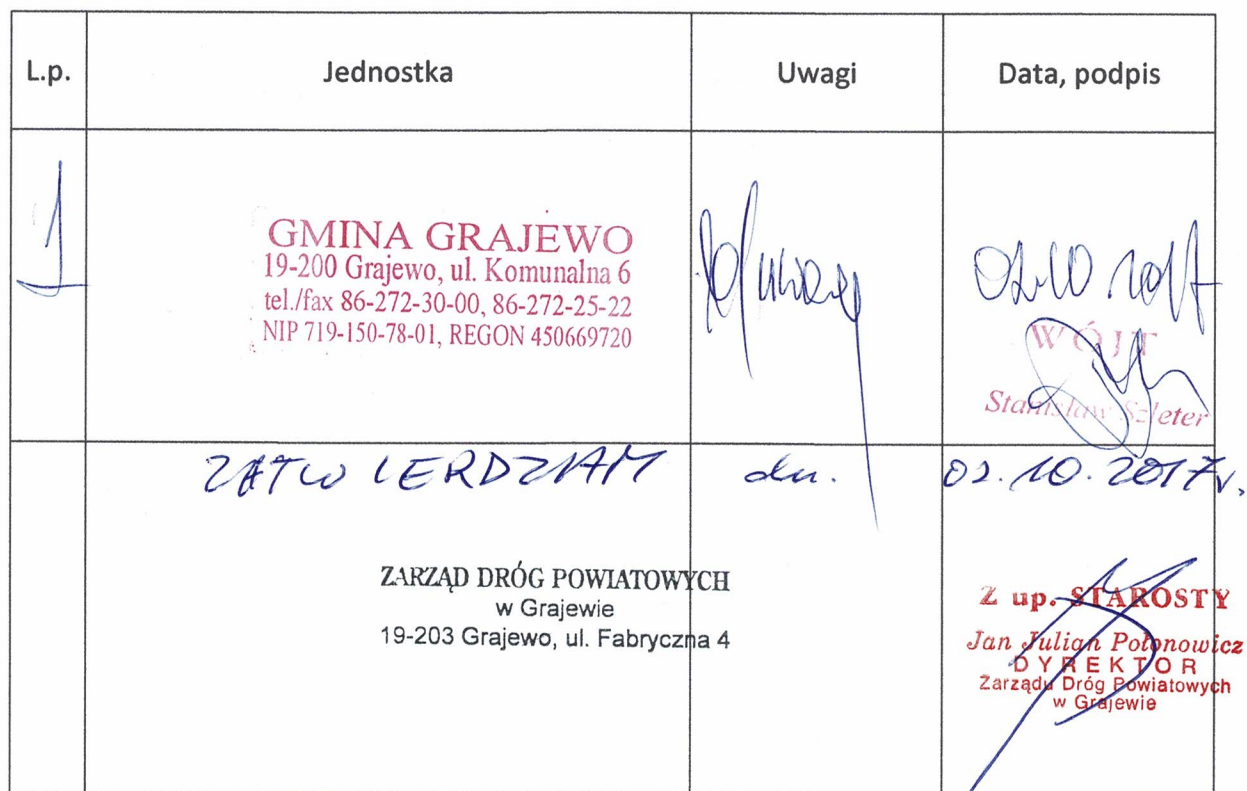 L.p. Jednostka Uwagi Data, podpis
1
GMINA GRAJEWO
19-200 Grajewo, ul. Komunalna 6
tel./fax 86-272-30-00, 86-272-25-22
NIP 719-150-78-01, REGON 450669720
WÓJT
Stanisław Szleter
ZATWIERDZIAM dn. 02.10.2017r.
ZARZĄD DRÓG POWIATOWYCH
w Grajewie
19-203 Grajewo, ul. Fabryczna 4
Z up. STAROSTY
Jan Julian Połonowicz
DYREKTOR
Zarządu Dróg Powiatowych
w Grajewie